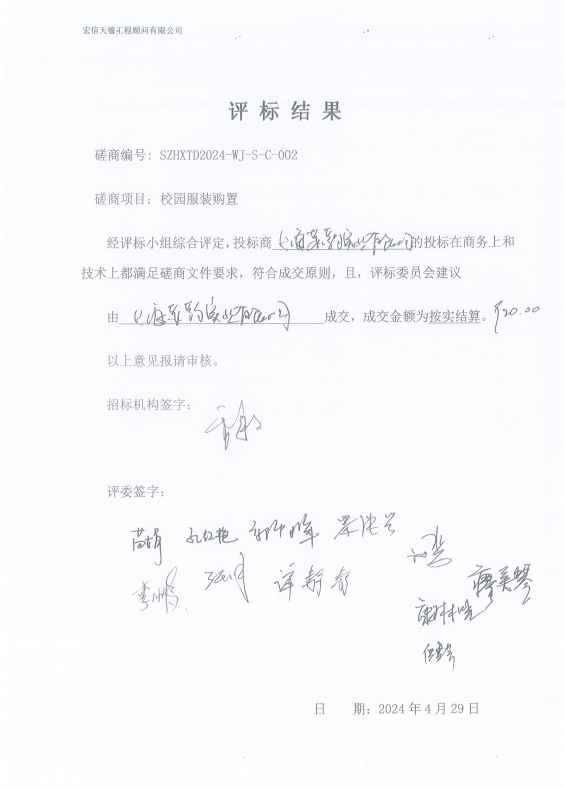 宏信天德工程顾问有限公司
评标结果
磋商编号: SZHXTD2024-WJ-S-C-002
磋商项目: 校园服装购置
经评标小组综合评定,投标商 上海 实业有限公司 的投标在商务上和
技术上都满足磋商文件要求,符合成交原则,且,评标委员会建议
由 上海 实业有限公司 成交,成交金额为按实结算。 720.00
以上意见报请审核。
招标机构签字:
评委签字:
苗娟 孔红艳
李鹏
廖美琴
日 期: 2024年4月29日